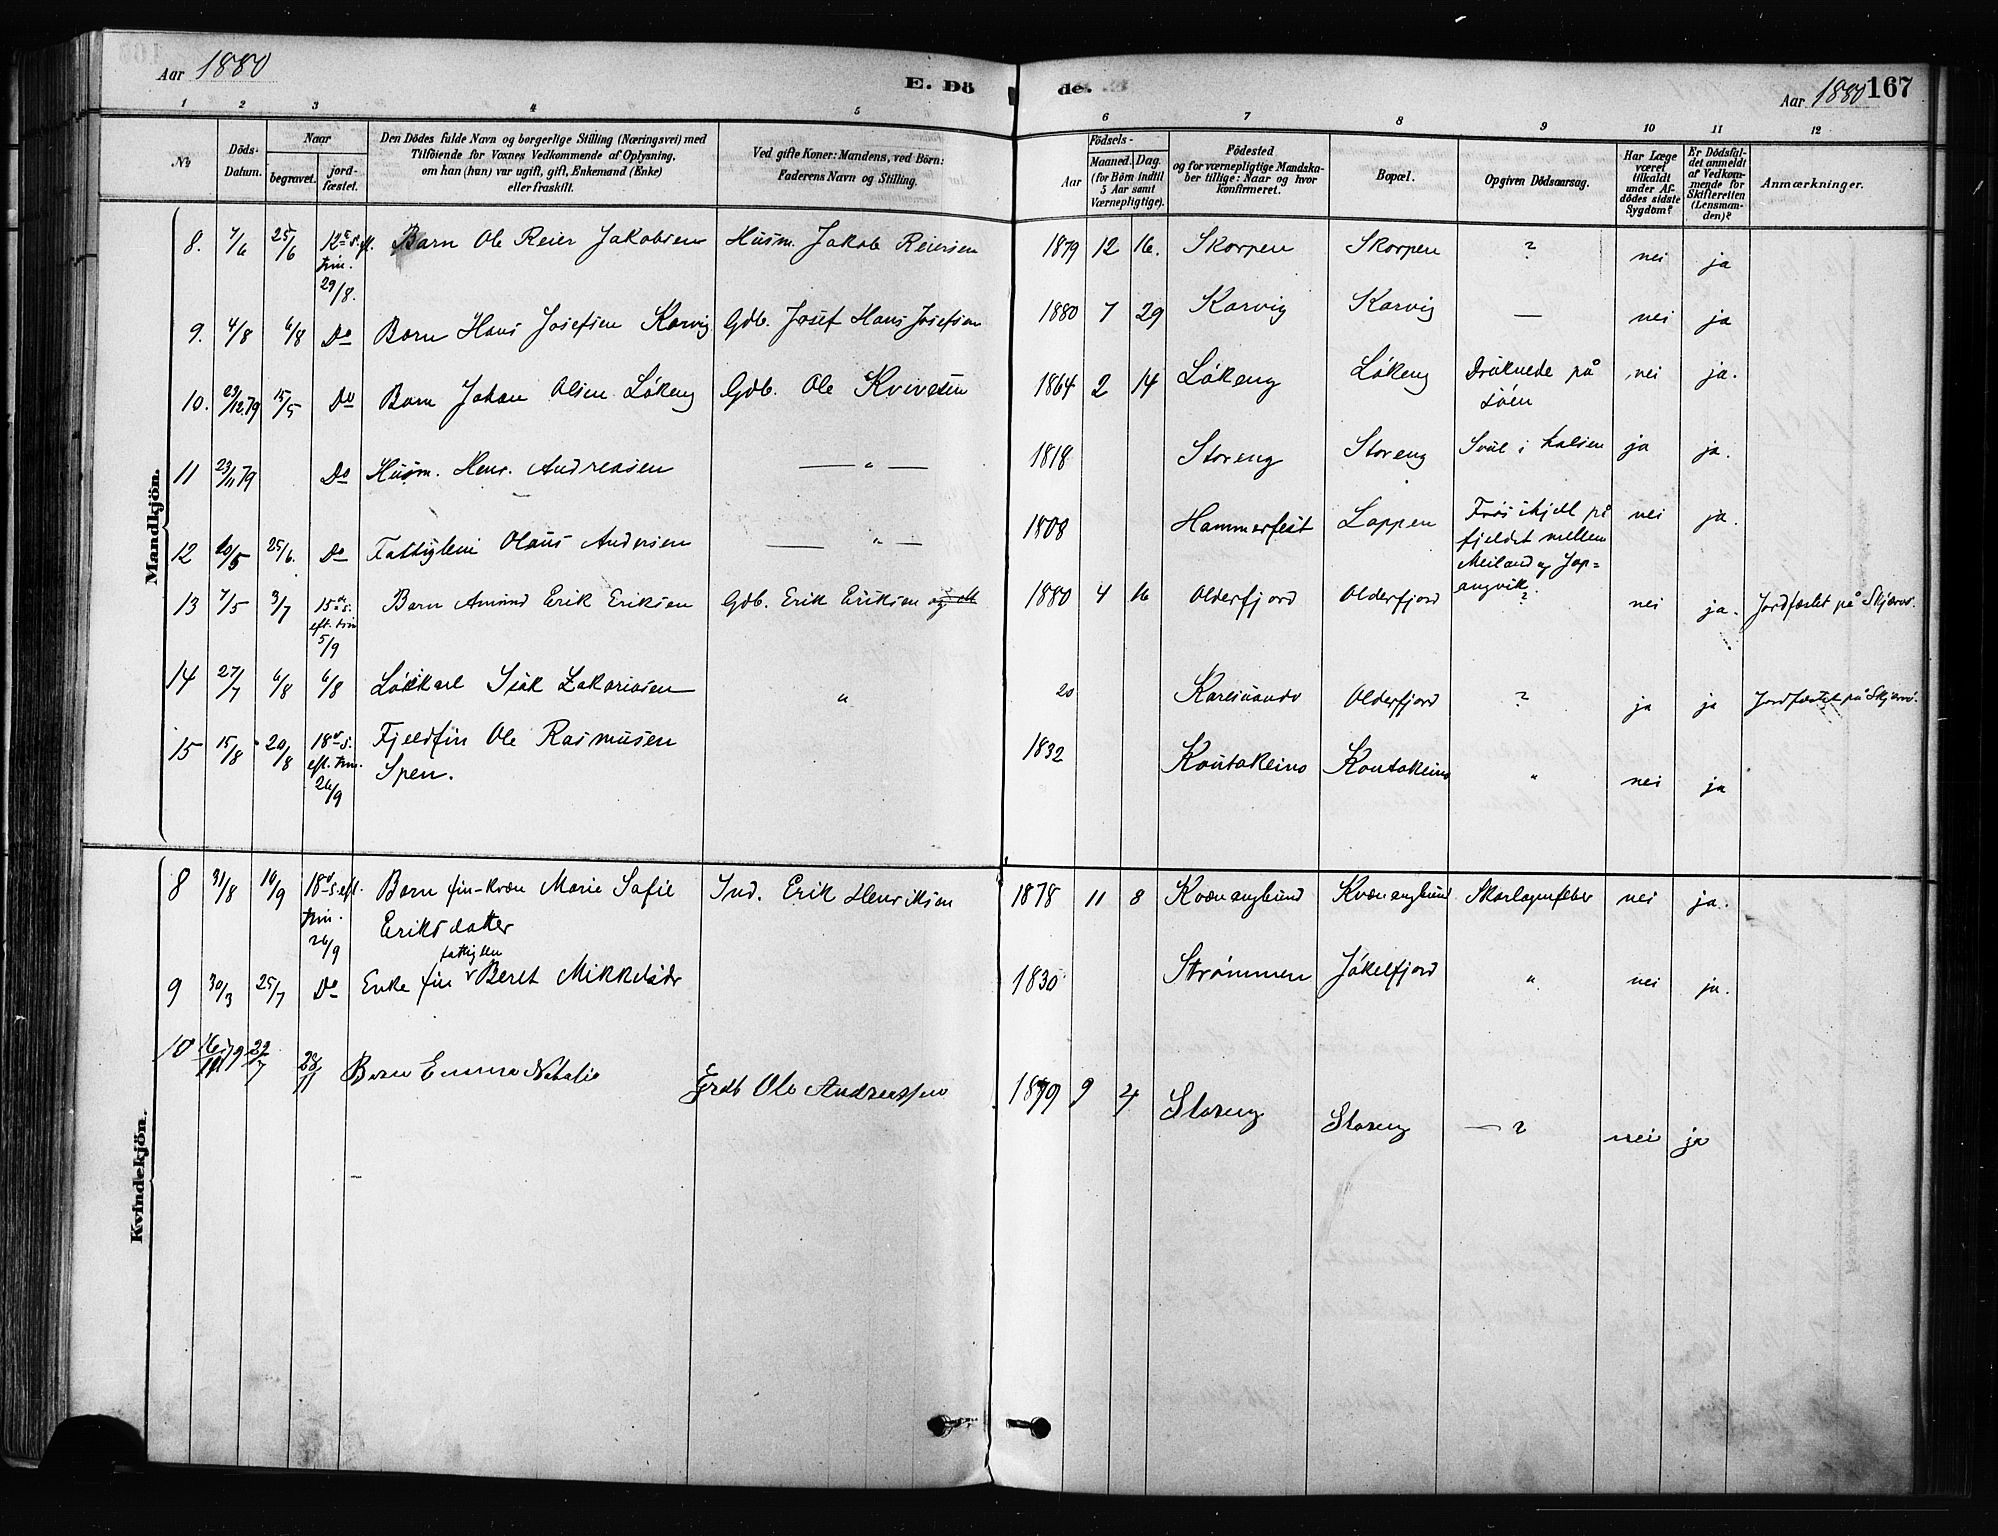 Aar 1880
E. Dö
de.
Aar 1880 167
1 2 3 4 5 6 7 8 9 10 11 12
No
Döds-Datum.
Naar
begravet.
jord-fæstet.
Den Dödes fulde Navn og borgerlige Stilling (Næringsvei) med
Tilföiende for Voxnes Vedkommende af Oplysning,
om han (hun) var ugift, gift, Enkemand (Enke)
eller fraskilt.
Ved gifte Koner: Mandens, ved Börn:
Faderens Navn og Stilling.
Födsels-
Aar
Maaned. Dag.
(for Börn indtil
5 Aar samt
Værnepligtige).
Födested
og for værnepligtige Mandska-
ber tillige: Naar og hvor
konfirmeret.
Bopæl.
Opgiven Dödsaarsag.
Har Læge
været
tilkaldt
under Af-
dödes sidste
Sygdom?
Er Dödsfal-
det anmeldt
af Vedkom-
mende for
Skifteretten
(Lensman-
den)?
Anmærkninger.
Mandkjön.
8. 7/6 25/6 12te S. eft. trin. 29/8. Barn Ole Reier Jakobsen Husm. Jakob Reiersen 1879 12 16. Skorpen Skorpen ? nei ja
9. 4/8 6/8 Do Barn Hans Josefsen Karvig Gdb. Josef Hans Josefsen 1880 7 29 Karvig Karvig — nei ja
10. 23/12 79 15/5 Do Barn Johan Olsen Løkeng Gdb. Ole Kvivesen 1864 2 14 Løkeng Løkeng Druknede på
søen nei ja.
11 23/11 79 Do Husm. Henr. Andreasen — " — 1818 Storeng Storeng Svul i halsen ja ja.
12 20/5 25/6. Do Fattiglem Olaus Andersen — " — 1808 Hammerfest Loppen Frøs ihjell på
fjeldet mellem
Meiland og Jøp=
angvik. nei ja.
13 7/5 3/7 15de S. eft. trin 5/9 Barn Amund Erik Eriksen Gdb. Erik Eriksen 1880 4 16 Olderfjord Olderfjord ? nei ja. Jordfæstet på Skjærvø.
14 27/7 6/8 6/8 Løskarl Isak Zakariasen " 20 Karesuando Olderfjord ? ja ja Jordfæstet på Skjærvø.
15 15/8 20/8 18de S. eft. trin. 26/9 Fjeldfin Ole Rasmusen
Spen. 1832 Koutokeino Koutokeino " nei ja
Kvindekjön.
8 31/8 10/9 18de S. eft. trin. 26/9 Barn fin-kvæn Marie Safie
Eriksdatter Ind. Erik Henriksen 1878 11 8 Kvænangsund Kvænangsund Skarlagensfeber nei ja.
9 30/3 25/7 Do Enke fin fattiglem Beret Mikkelsdr 1830 Strømmen Jøkelfjord " nei ja.
10 16/11 79 22/7 28/11 Barn Emma Natalie Grdb Ole Andreassen 1879 9 4 Storeng Storeng — ? nei ja